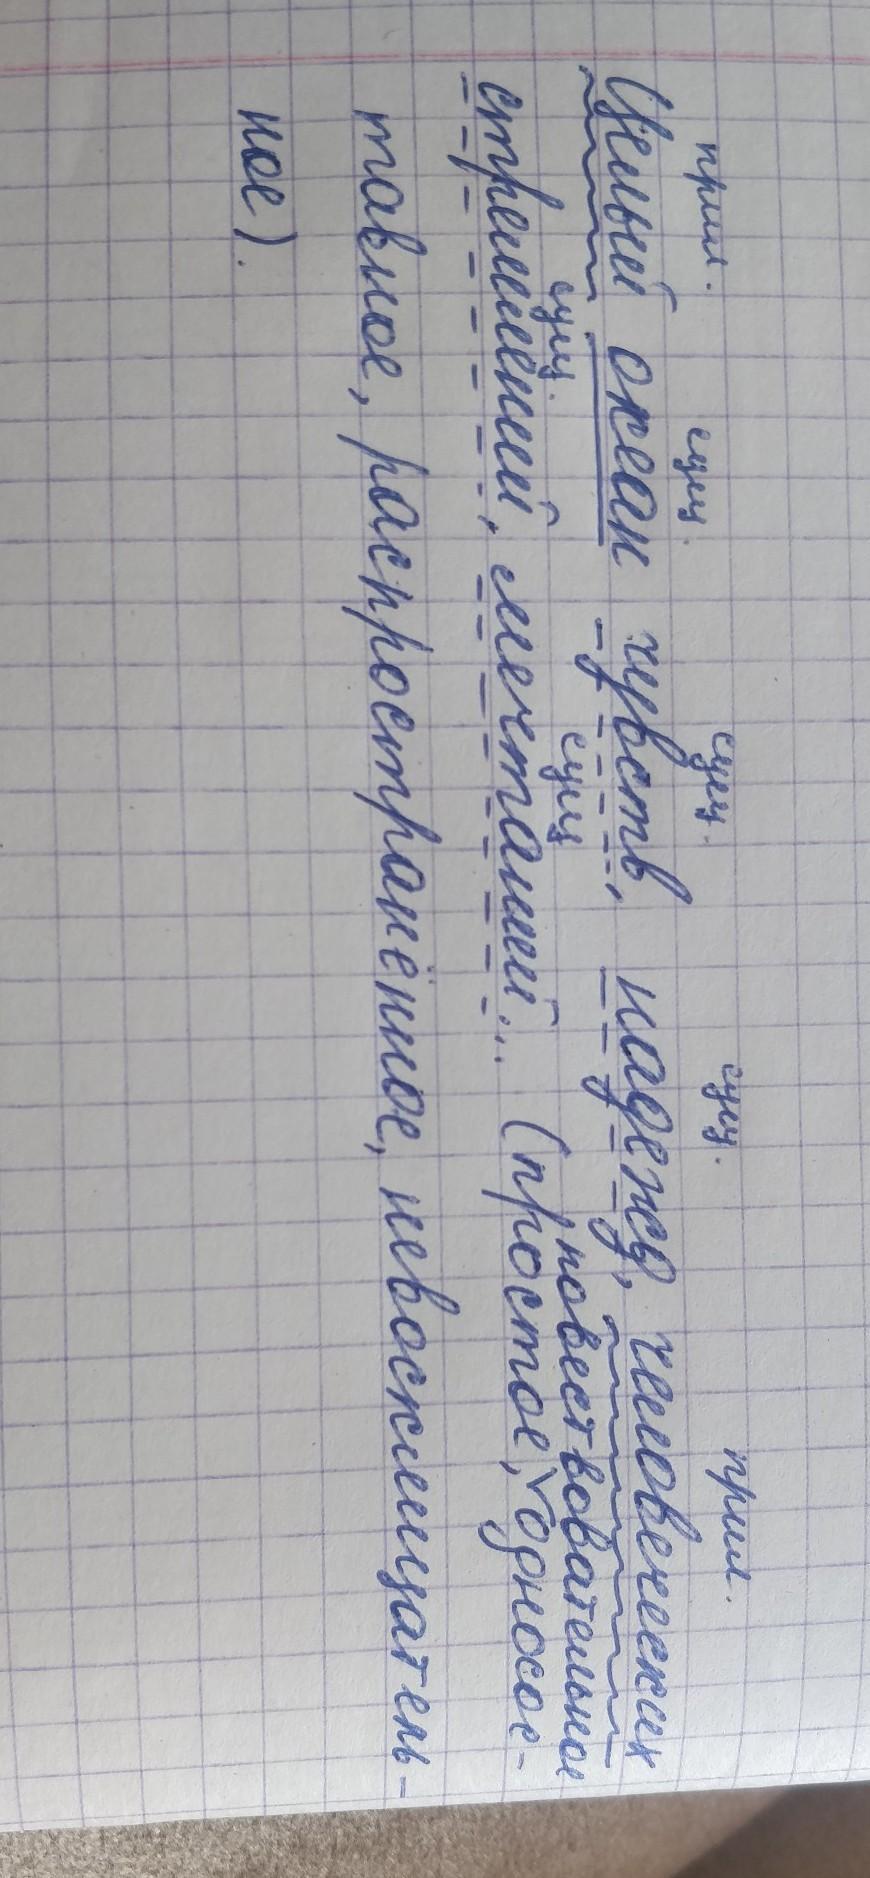 прил. сущ. сущ. сущ. прил.
Целый океан чувств, надежд, человеческих
сущ. сущ повествовательное
стремлений, мечтаний... (простое, односос-
тавное, распространённое, невосклицатель-
ное).